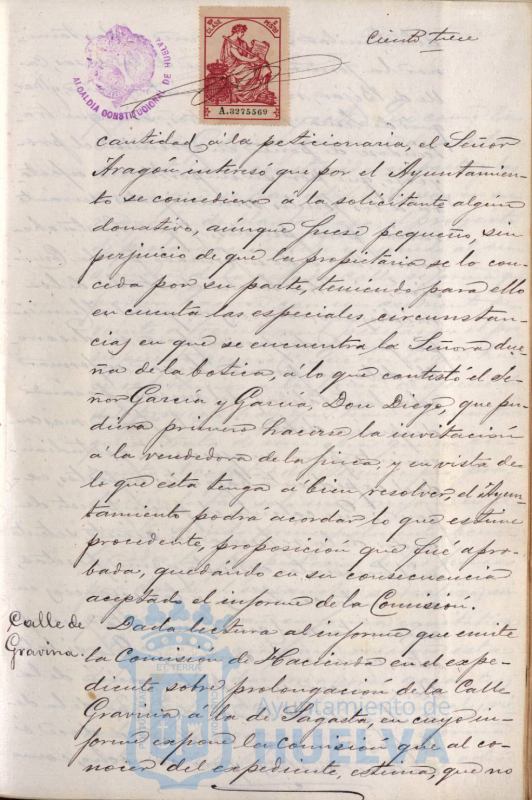 Ciento trece
ALCALDIA CONSTITUCIONAL DE HUELVA
A.3275569
cantidad á la peticionaria, el Señor
Aragón interesó que por el Ayuntamien-
to se concediera á la solicitante algún
donativo, aunque fuese pequeño, sin
perjuicio de que la propietaria se lo con-
ceda por su parte, teniendo para ello
en cuenta las especiales circunstan-
cias en que se encuentra la Señora due-
ña de la botica, á lo que contestó el Se-
ñor García y García, Don Diego, que pu-
diera primero hacerse la invitación
á la vendedora de la finca y en vista de
lo que ésta tenga á bien resolver, el Ayun-
tamiento podrá acordar lo que estime
procedente, proposición que fué apro-
bada, quedando en su consecuencia
aceptado el informe de la Comisión.
Calle de
Gravina.
Dada lectura al informe que emite
la Comisión de Hacienda en el expe-
diente sobre prolongación de la Calle
Gravina á la de Sagasta, en cuyo in-
forme expone la Comisión que al co-
nocer del expediente, estima, que no
Ayuntamiento de
HUELVA